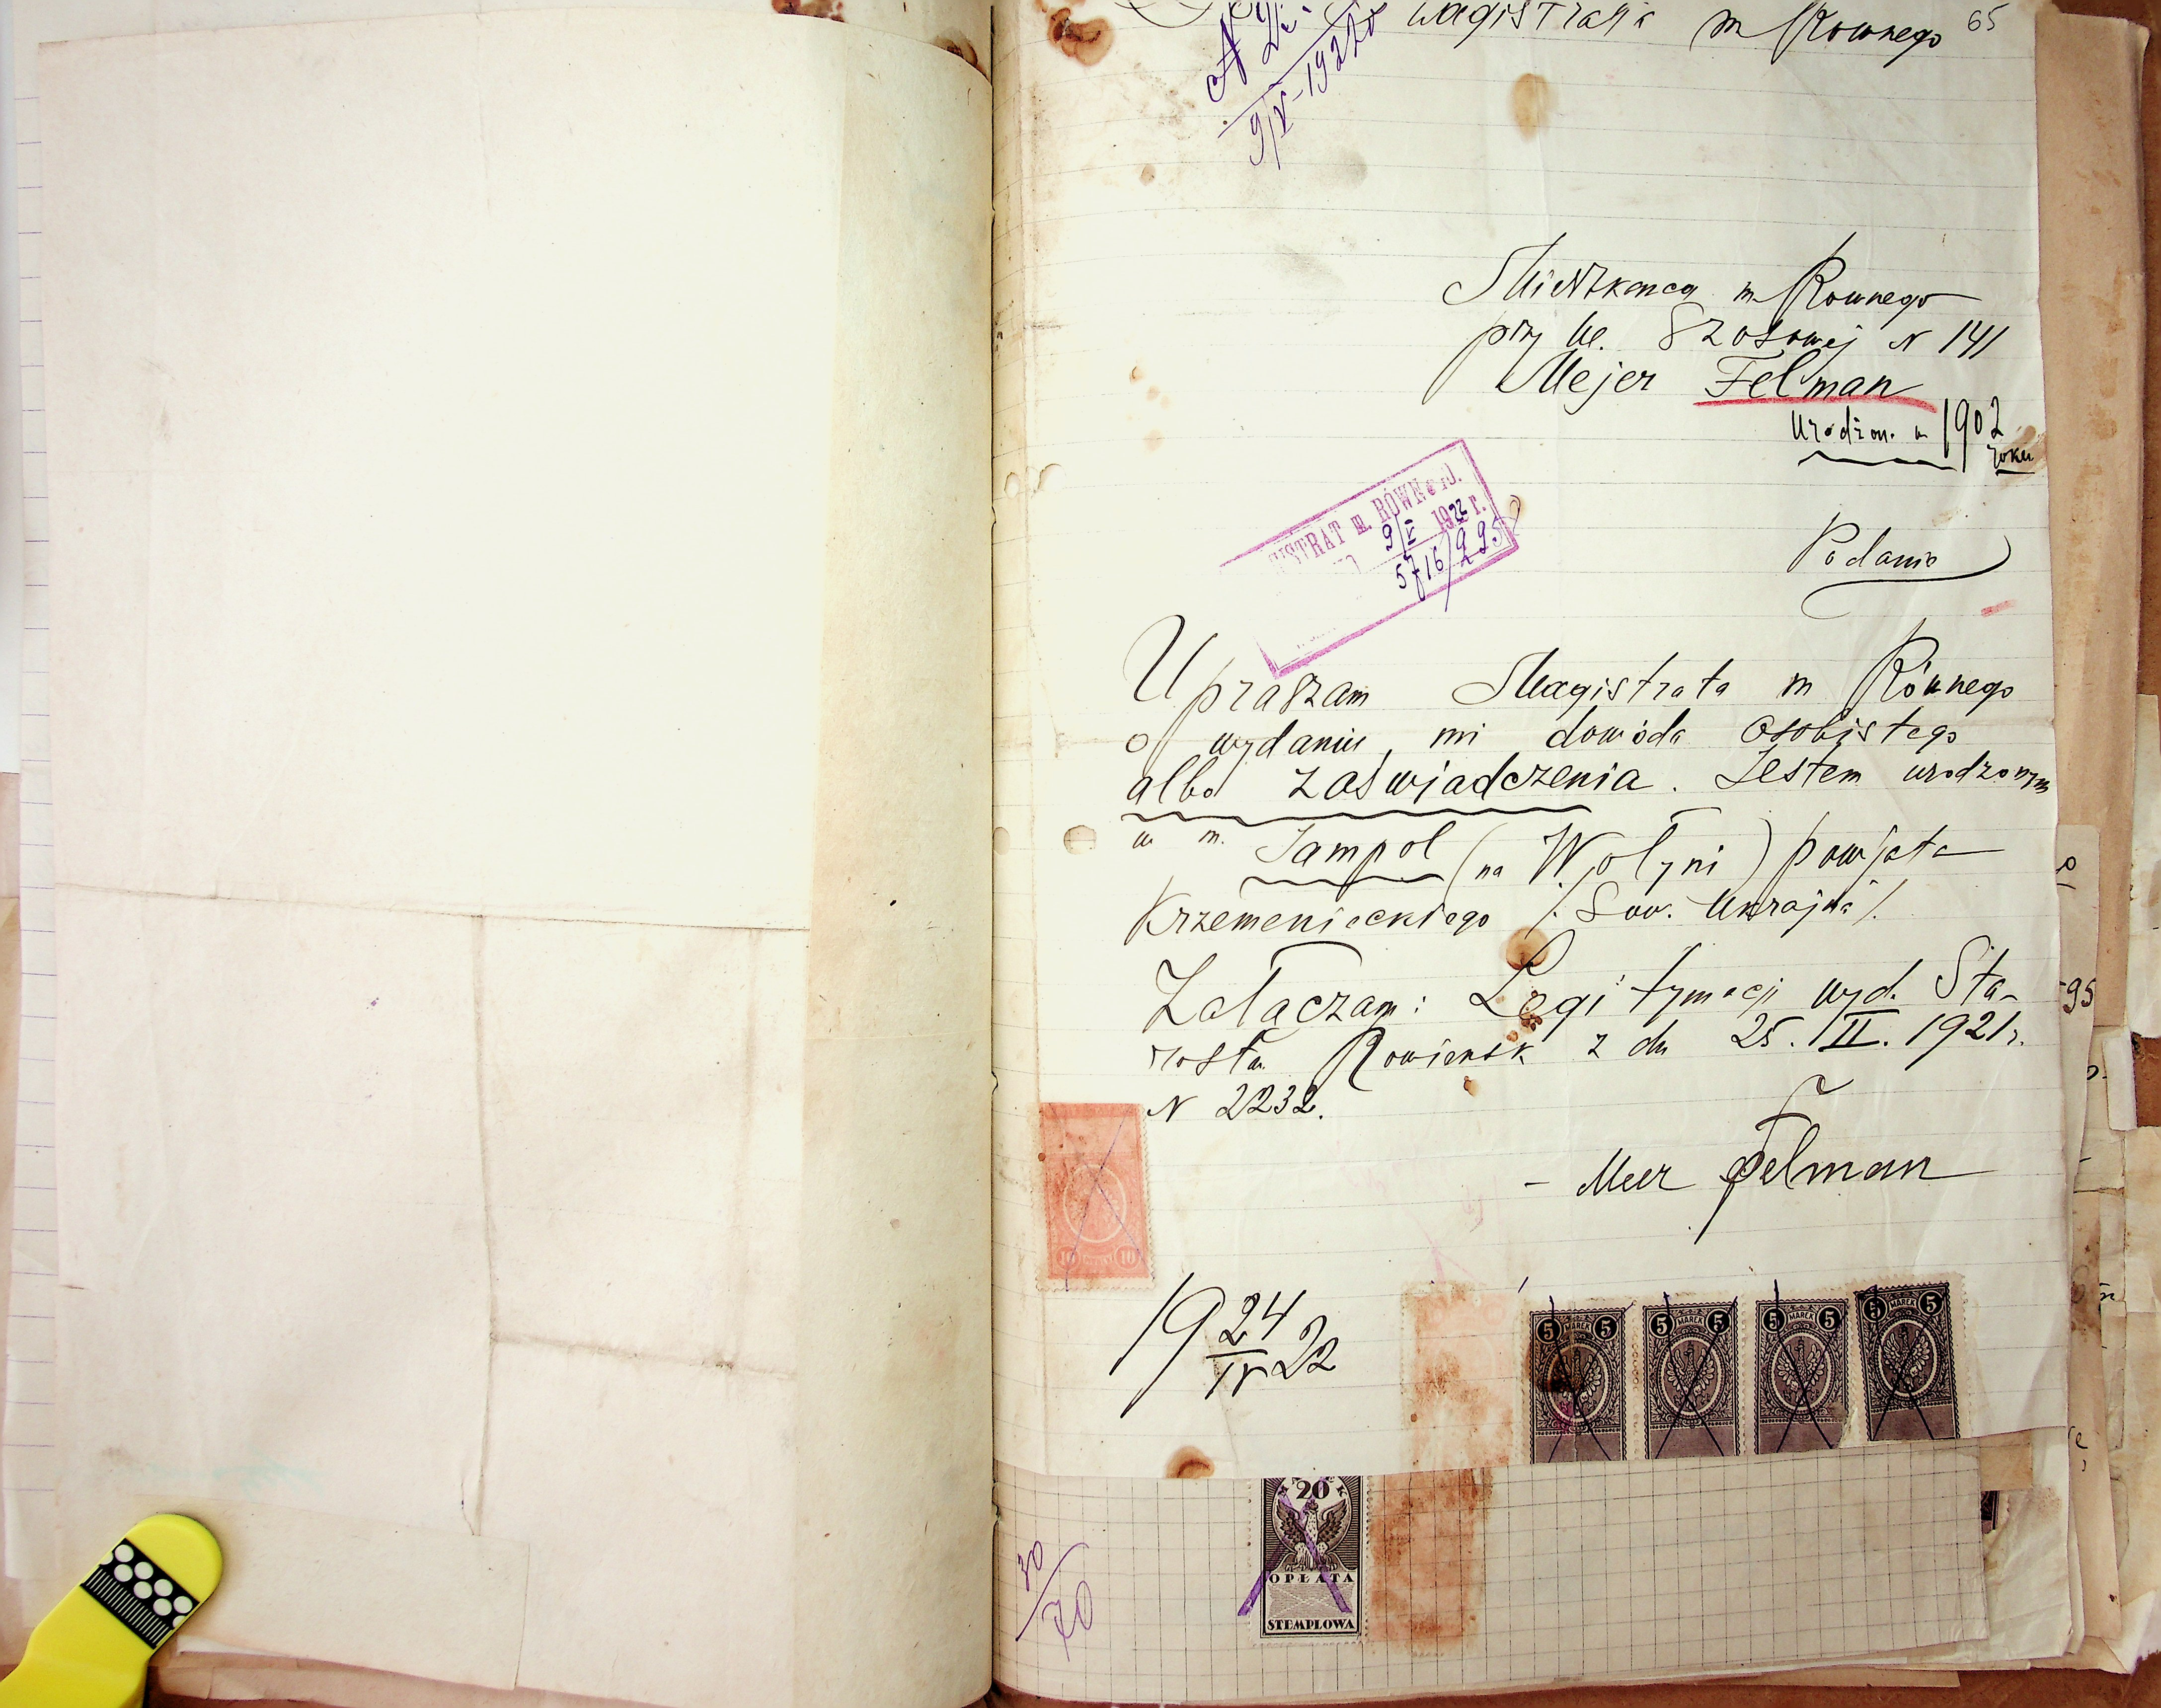 Magistrata m Rownego 65
9/V-1922
Mieszkanca m Rownego
przy ul. Szosowej N 141
Mejer Felman
Urodzon. w 1902
roku
MAGISTRAT m. RÓWNEGO.
9/V 1922 r.
5716/995
Podanie
Upraszam Magistrata m Równego
o wydaniu mi dowoda osobistego
albo zaświadczenia. Jestem urodzonym
w m. Jampol (na Wołyni) powjata
Krzemenieckiego /. Sow. Ukrajna /.
Załaczam: Legitymacji wyd. Sta-
rostw. Rowiensk z dn 25. II. 1921 r.
N 2232.
- Meer Felman
10 10
19 24/IV 22
5 MAREK 5
5 MAREK 5
5 MAREK 5
5 MAREK 5
20
OPŁATA
STEMPLOWA
30/70